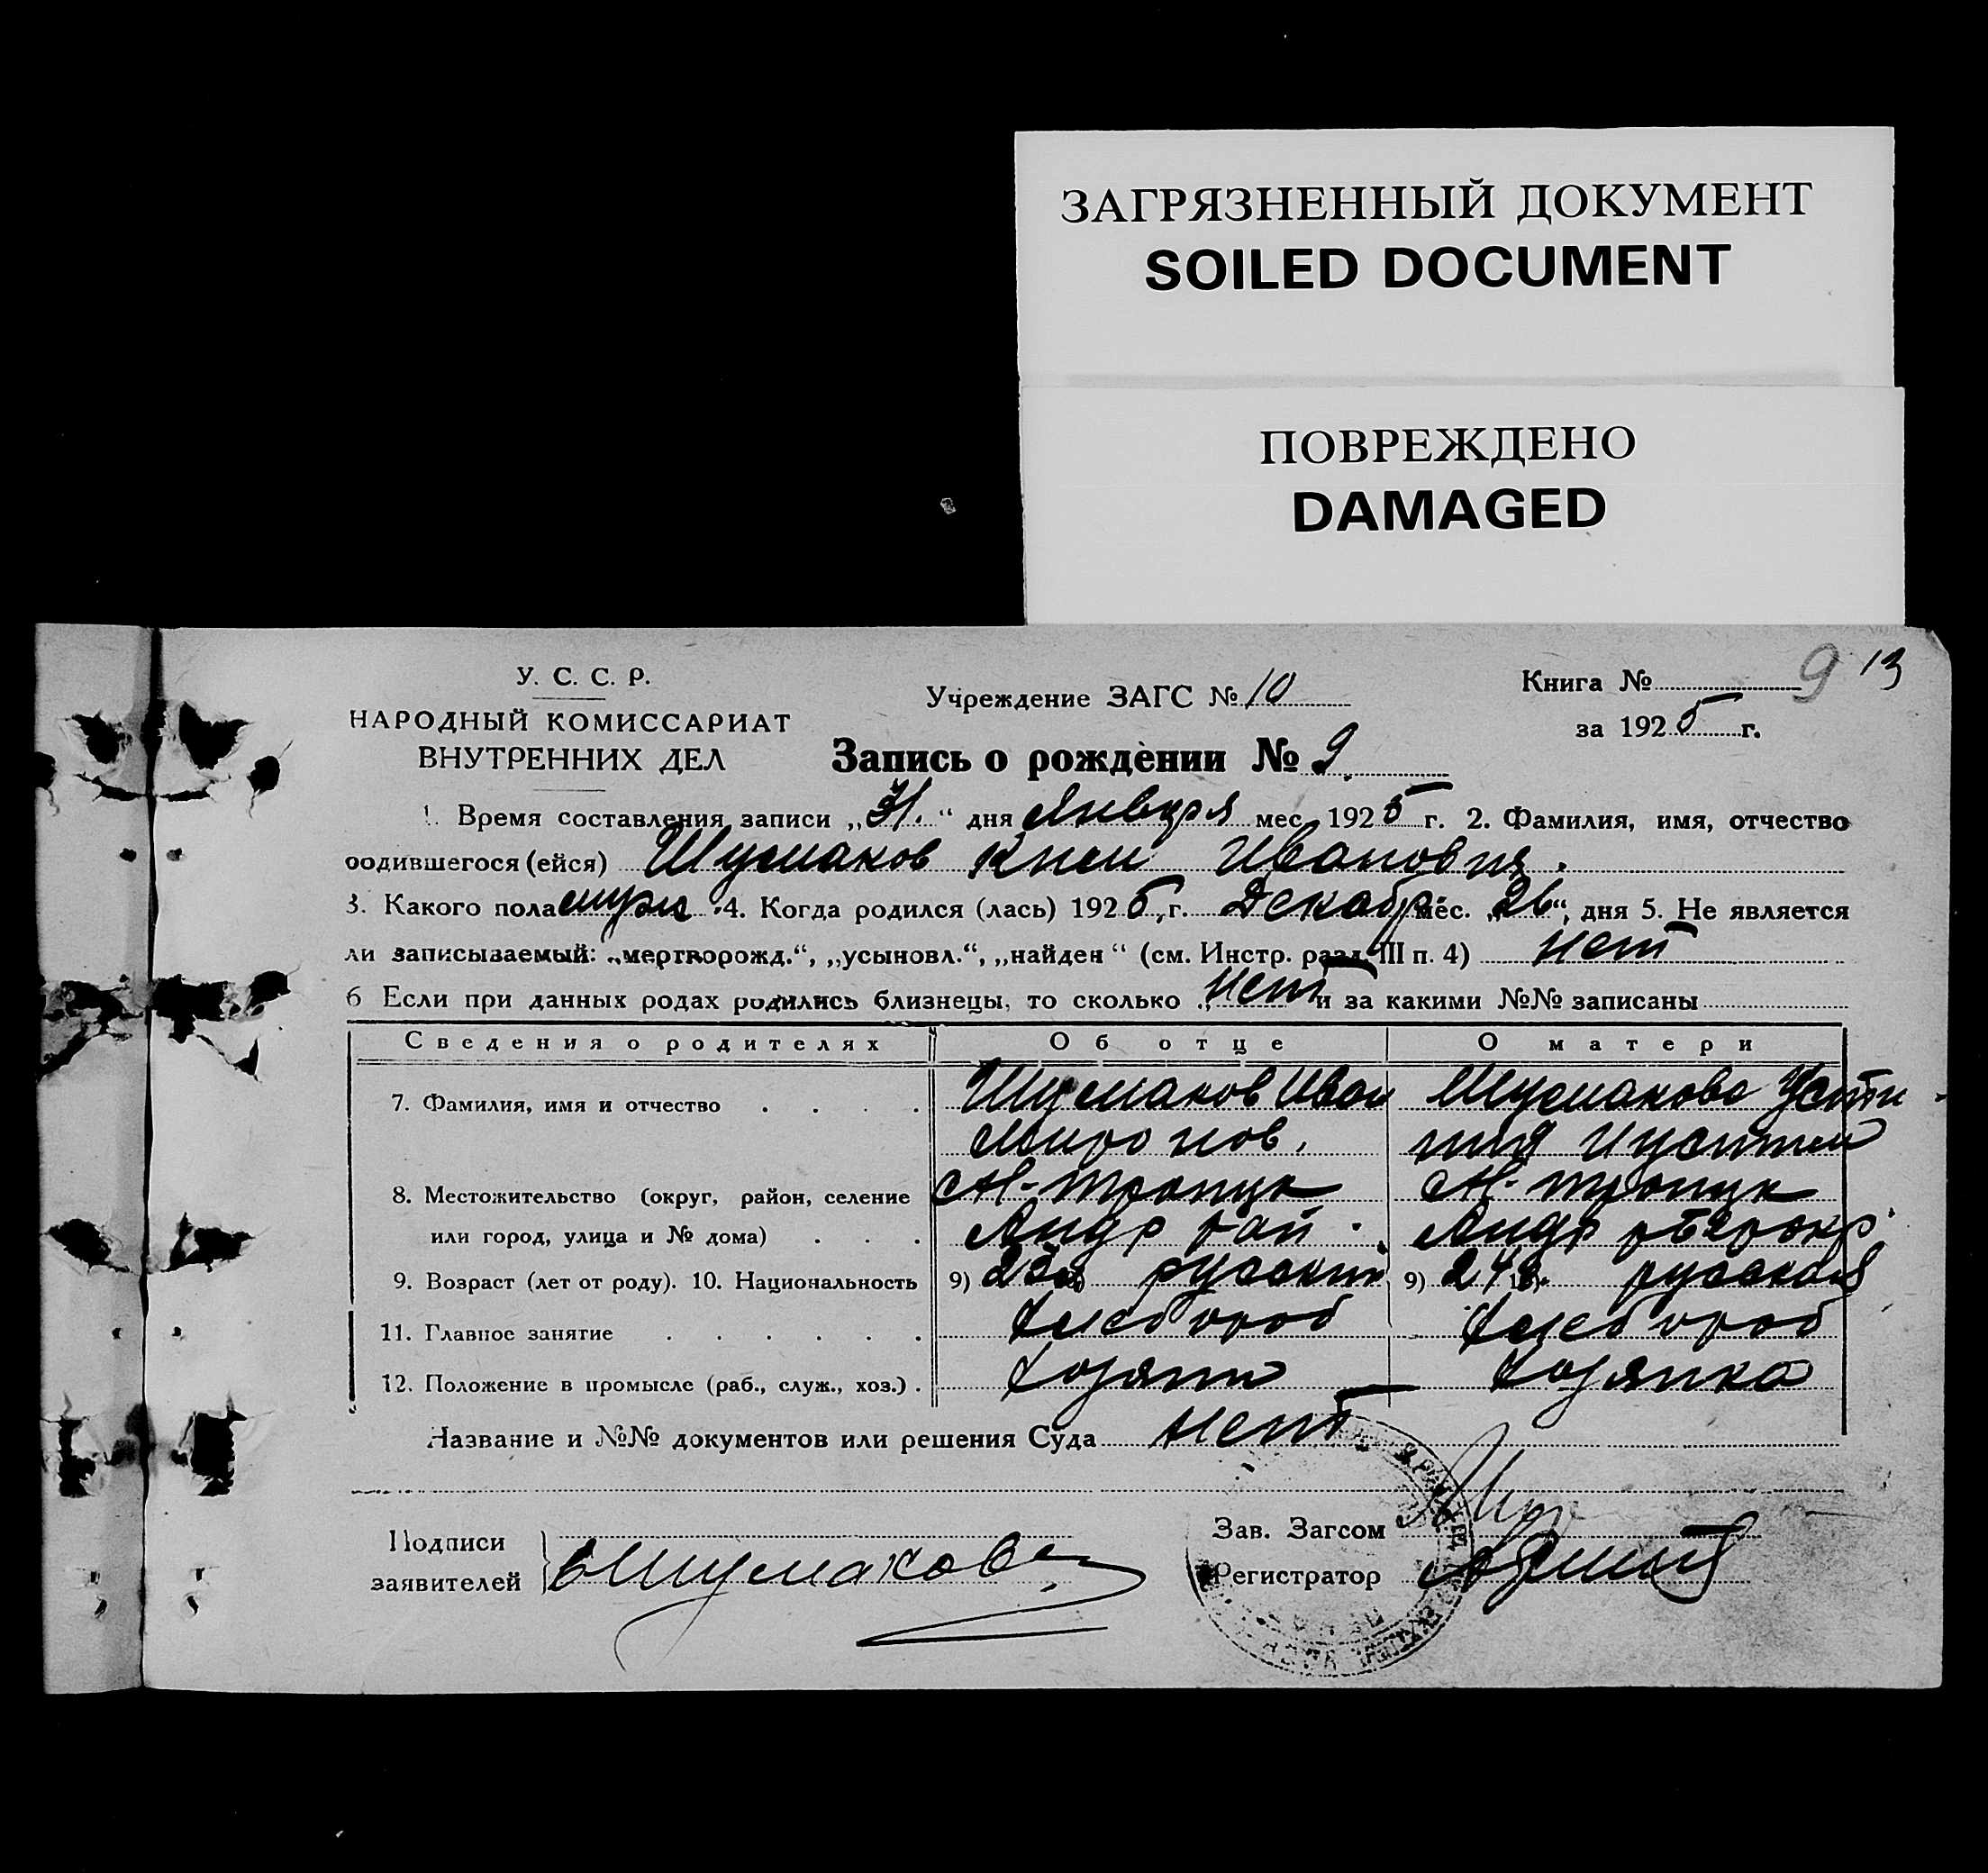 ЗАГРЯЗНЕННЫЙ ДОКУМЕНТ
SOILED DOCUMENT
ПОВРЕЖДЕНО
DAMAGED
9 13
У. С. С. Р.
НАРОДНЫЙ КОМИССАРИАТ
ВНУТРЕННИХ ДЕЛ
Учреждение ЗАГС № 10
Книга №
за 1925 г.
Запись о рождении № 9
1. Время составления записи „31.“ дня Января мес. 1925 г. 2. Фамилия, имя, отчество
родившегося (ейся) Шумаков Ивановия.
3. Какого пола муж. 4. Когда родился (лась) 1925 г. Декабр мес. „26“ дня 5. Не является
ли записываемый: „мертворожд.“, „усыновл.“, „найден“ (см. Инстр. разд. III п. 4) нет
6 Если при данных родах родились близнецы, то сколько „нет и за какими №№ записаны
Сведения о родителях Об отце О матери
7. Фамилия, имя и отчество Шумаков Иван Шумакова Усти
Миронов.
8. Местожительство (округ, район, селение
или город, улица и № дома) Андр рай. Андр
9. Возраст (лет от роду). 10. Национальность 9) русский 9) 24 русская
11. Главное занятие Хлебороб Хлебороб
12. Положение в промысле (раб., служ., хоз.) Хозяин Хозянка
Название и №№ документов или решения Суда нет
Подписи
заявителей Шумаков
Зав. Загсом
Регистратор